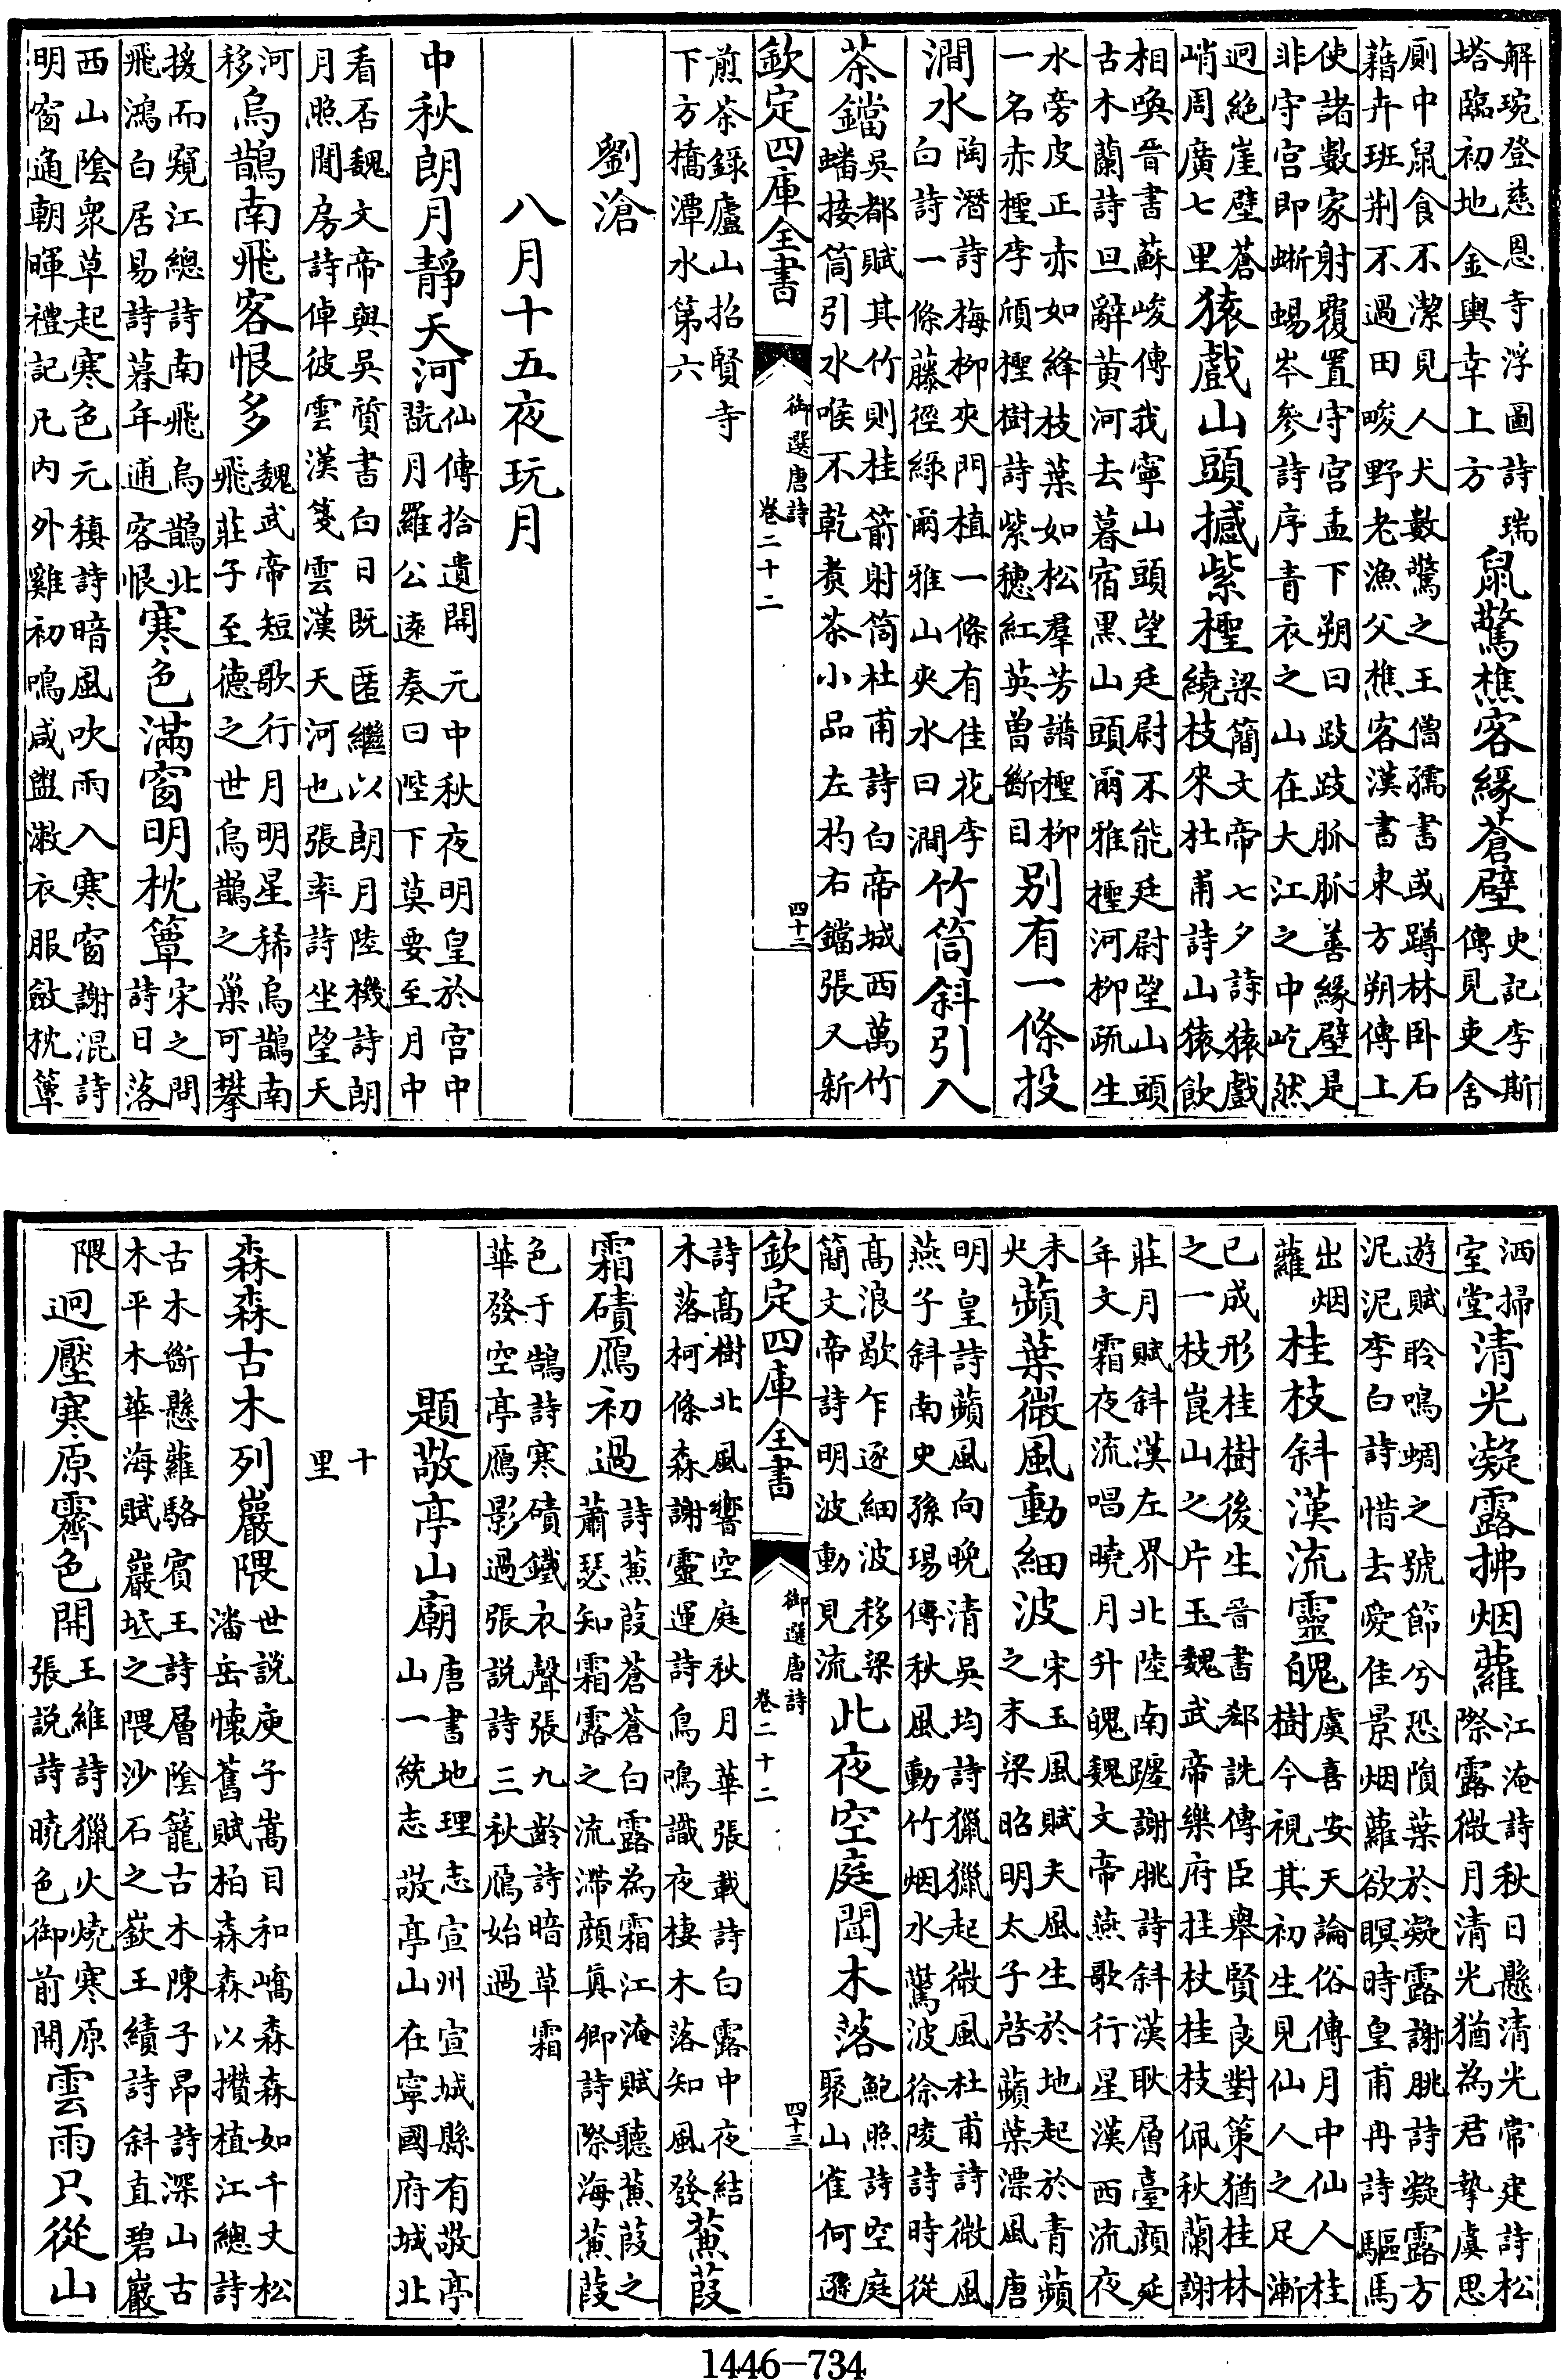 解琬登慈恩寺浮圖詩瑞塔臨初地金輿幸上方鼠驚樵客緣蒼壁史記李斯傳見吏舍
廁中鼠食不潔見人犬數驚之王僧孺書或蹲林卧石藉卉班荆不過田畯野老漁父樵客漢書東方朔傳上
使諸數家射覆置守宫盂下朔曰跂跂脉脉善緣壁是非守宫即蜥蜴岑參詩序青衣之山在大江之中屹然
迥絶崖壁蒼峭周廣七里猿戲山頭撼紫檉梁簡文帝七夕詩猿戲繞枝來杜甫詩山猿飲
相喚晉書蘇峻傳我寧山頭望廷尉不能廷尉望山頭古木蘭詩旦辭黄河去暮宿黑山頭爾雅檉河柳疏生
水旁皮正赤如絳枝葉如松羣芳譜檉柳一名赤檉李頎檉樹詩紫穗紅英曽斷目别有一條投
澗水陶潛詩梅柳夾門植一條有佳花李白詩一條藤徑緑爾雅山夾水曰澗竹筒斜引入
茶鐺吳都賦其竹則桂箭射筒杜甫詩白帝城西萬竹蟠接筒引水喉不乾煮茶小品左杓右鐺張又新
欽定四庫全書 御選唐詩 卷二十二 四十二
煎茶録廬山招賢寺下方橋潭水第六
劉滄
八月十五夜玩月
中秋朗月靜天河仙傳拾遺開元中秋夜明皇於宫中翫月羅公遠奏曰陛下莫要至月中
看否魏文帝與吳質書白日既匿繼以朗月陸機詩朗月照閒房詩倬彼雲漢箋雲漢天河也張率詩坐望天
河移烏鵲南飛客恨多魏武帝短歌行月明星稀烏鵲南飛莊子至德之世烏鵲之巢可攀
援而窺江總詩南飛烏鵲北飛鴻白居易詩暮年逋客恨寒色滿窗明枕簟宋之問詩日落
西山陰衆草起寒色元稹詩暗風吹雨入寒窗謝混詩明窗通朝暉禮記凡内外雞初鳴咸盥漱衣服斂枕簟
洒掃室堂清光凝露拂烟蘿江淹詩秋日懸清光常建詩松際露微月清光猶為君摯虞思
遊賦聆鳴蜩之號節兮恐隕葉於凝露謝朓詩凝露方泥泥李白詩惜去愛佳景烟蘿欲暝時皇甫冉詩驅馬
出烟蘿桂枝斜漢流靈魄虞喜安天論俗傳月中仙人桂樹今視其初生見仙人之足漸
已成形桂樹後生晉書郄詵傳臣舉賢良對策猶桂林之一枝崑山之片玉魏武帝樂府拄杖桂枝佩秋蘭謝
莊月賦斜漢左界北陸南躔謝朓詩斜漢耿層臺顔延年文霜夜流唱曉月升魄魏文帝燕歌行星漢西流夜
未央蘋葉微風動細波宋玉風賦夫風生於地起於青蘋之末梁昭明太子啓蘋葉漂風唐
明皇詩蘋風向晚清吳均詩獵獵起微風杜甫詩微風燕子斜南史孫瑒傳秋風動竹烟水驚波徐陵詩時從
髙浪歇乍逐細波移梁簡文帝詩明波動見流此夜空庭聞木落鮑照詩空庭聚山雀何遜
欽定四庫全書 御選唐詩 卷二十二 四十三
詩髙樹北風響空庭秋月華張載詩白露中夜結木落柯條森謝靈運詩鳥鳴識夜棲木落知風發蒹葭
霜磧鴈初過詩蒹葭蒼蒼白露為霜江淹賦聽蒹葭之蕭瑟知霜露之流滯顔真卿詩際海蒹葭
色于鵠詩寒磧鐵衣聲張九齡詩暗草霜華發空亭鴈影過張説詩三秋鴈始過
題敬亭山廟唐書地理志宣州宣城縣有敬亭山一統志敬亭山在寧國府城北
十里
森森古木列巖隈世説庾子嵩目和嶠森森如千丈松潘岳懷舊賦柏森森以攢植江總詩
古木斷懸蘿駱賓王詩層陰籠古木陳子昂詩深山古木平木華海賦巖坻之隈沙石之嶔王績詩斜直碧巖
隈迥壓寒原霽色開王維詩獵火燒寒原張説詩曉色御前開雲雨只從山
1446-734